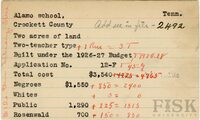 Alamo school, Tenn.
Crockett County
Add see in files - 2492
Two acres of land
Two-teacher type + 1 Rm = 3 T
Built under the 1926-27 Budget
Application No. 12-F
Total cost $3,540 + 1225 = 4765
Negroes $1,550 + 850 = 2400
Whites
Public 1,290
Rosenwald 700
FISK
UNIVERSITY